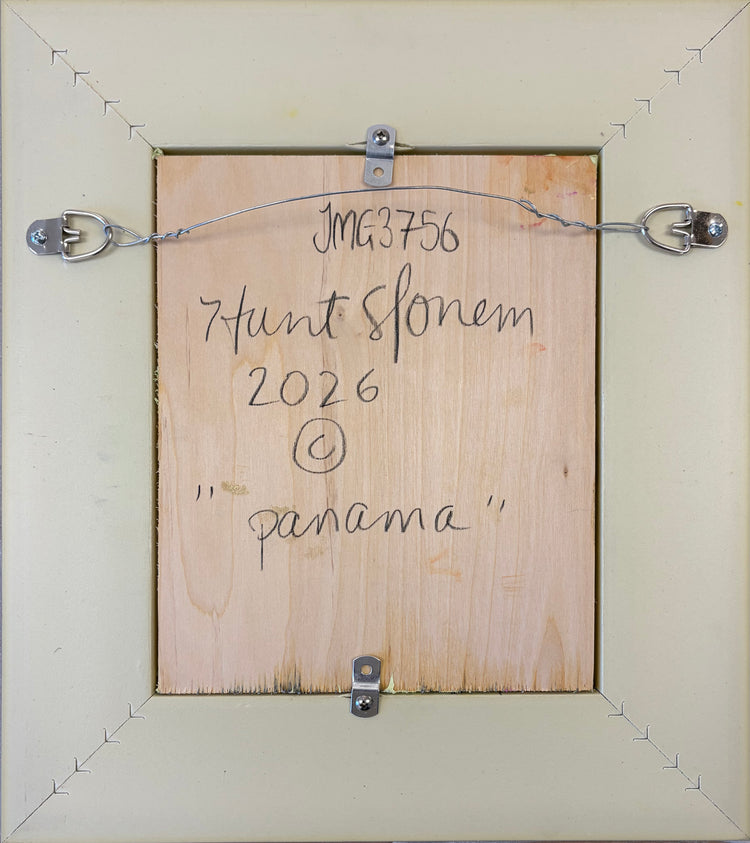 JMG3756
Hunt Slonem
2026
©
"panama"